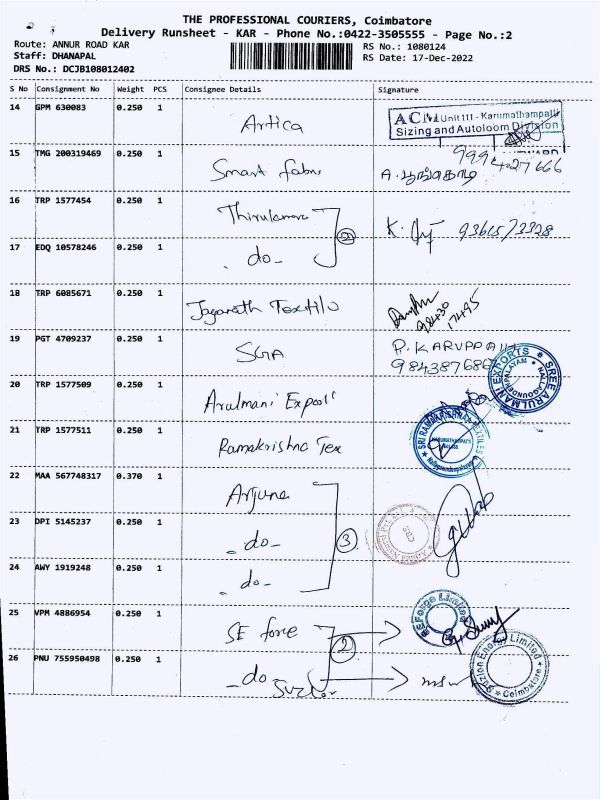 THE PROFESSIONAL COURIERS, Coimbatore
Delivery Runsheet - KAR - Phone No.:0422-3505555 - Page No.:2
Route: ANNUR ROAD KAR
Staff: DHANAPAL
DRS No.: DCJB108012402
RS No.: 1080124
RS Date: 17-Dec-2022
S No Consignment No Weight PCS Consignee Details Signature
14 GPM 630083 0.250 1 Artica
ACM Unit III - Karumathampatti
Sizing and Autoloom Division
15 TMG 200319469 0.250 1 Smart fabric
A. பூங்கொடி
16 TRP 1577454 0.250 1
17 EDQ 10578246 0.250 1 - do -
2
K.
18 TRP 6085671 0.250 1 Jaganath Textile
98430
17495
19 PGT 4709237 0.250 1 SGA
P. KARUPPA
984387686
20 TRP 1577509 0.250 1 Arulmani Export
SREE ARULMANI EXPORTS
NALLAGOUNDENPALAYAM
21 TRP 1577511 0.250 1 Ramakrishna Tex
SRI RAMAKRISHNA TEXTILES
22 MAA 567748317 0.370 1 Arjuna
23 DPI 5145237 0.250 1 - do -
3
24 AWY 1919248 0.250 1 - do -
25 VPM 4886954 0.250 1 SE force
2
26 PNU 755950498 0.250 1 - do
Suzlon
Suzlon Energy Limited
Coimbatore